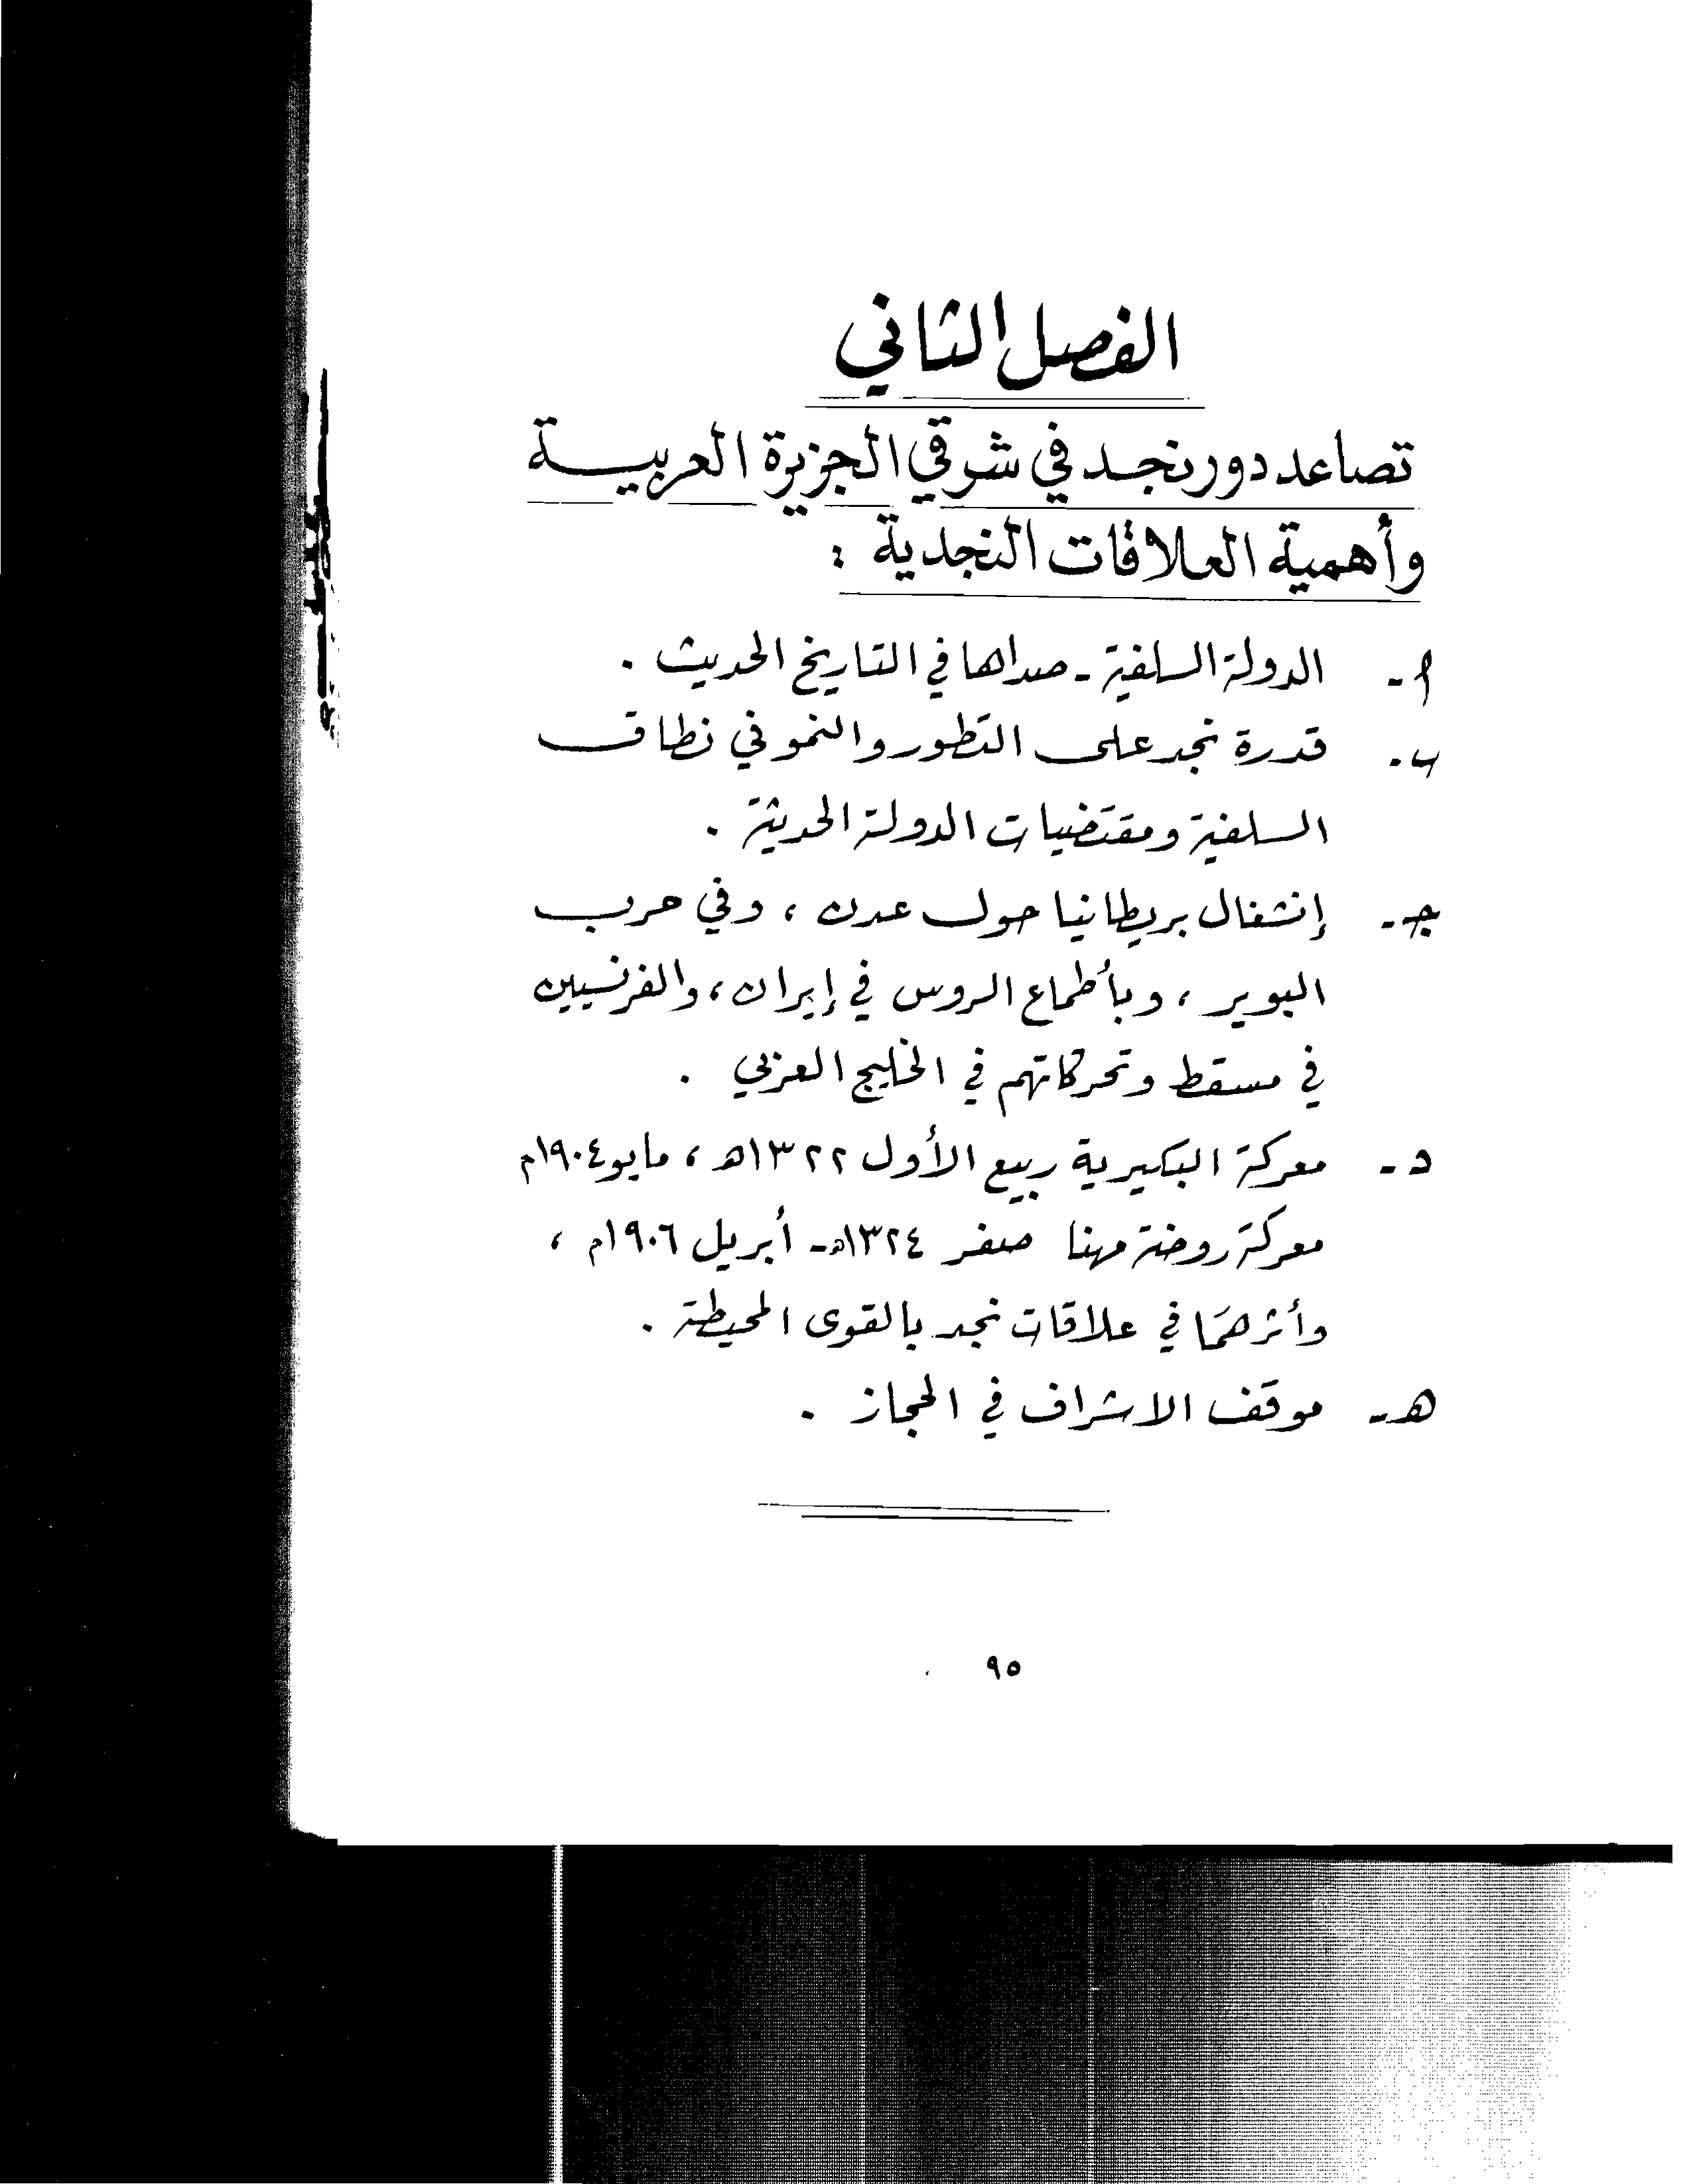 الفصل الثاني
تصاعد دور نجد في شرقي الجزيرة العربية
وأهمية العلاقات النجدية :
أ - الدولة السلفية - صداها في التاريخ الحديث .
ب - قدرة نجد على التطور والنمو في نطاق
السلفية ومقتضيات الدولة الحديثة .
جـ - إنشغال بريطانيا حول عدن ، وفي حرب
البوير ، وبأطماع الروس في إيران ، والفرنسيين
في مسقط وتحركاتهم في الخليج العربي .
د - معركة البكيرية ربيع الأول ١٣٢٢هـ ، مايو ١٩٠٤م
معركة روضة مهنا صفر ١٣٢٤هـ - أبريل ١٩٠٦م ،
وأثرهما في علاقات نجد بالقوى المحيطة .
هـ - موقف الاشراف في الحجاز .
٩٥